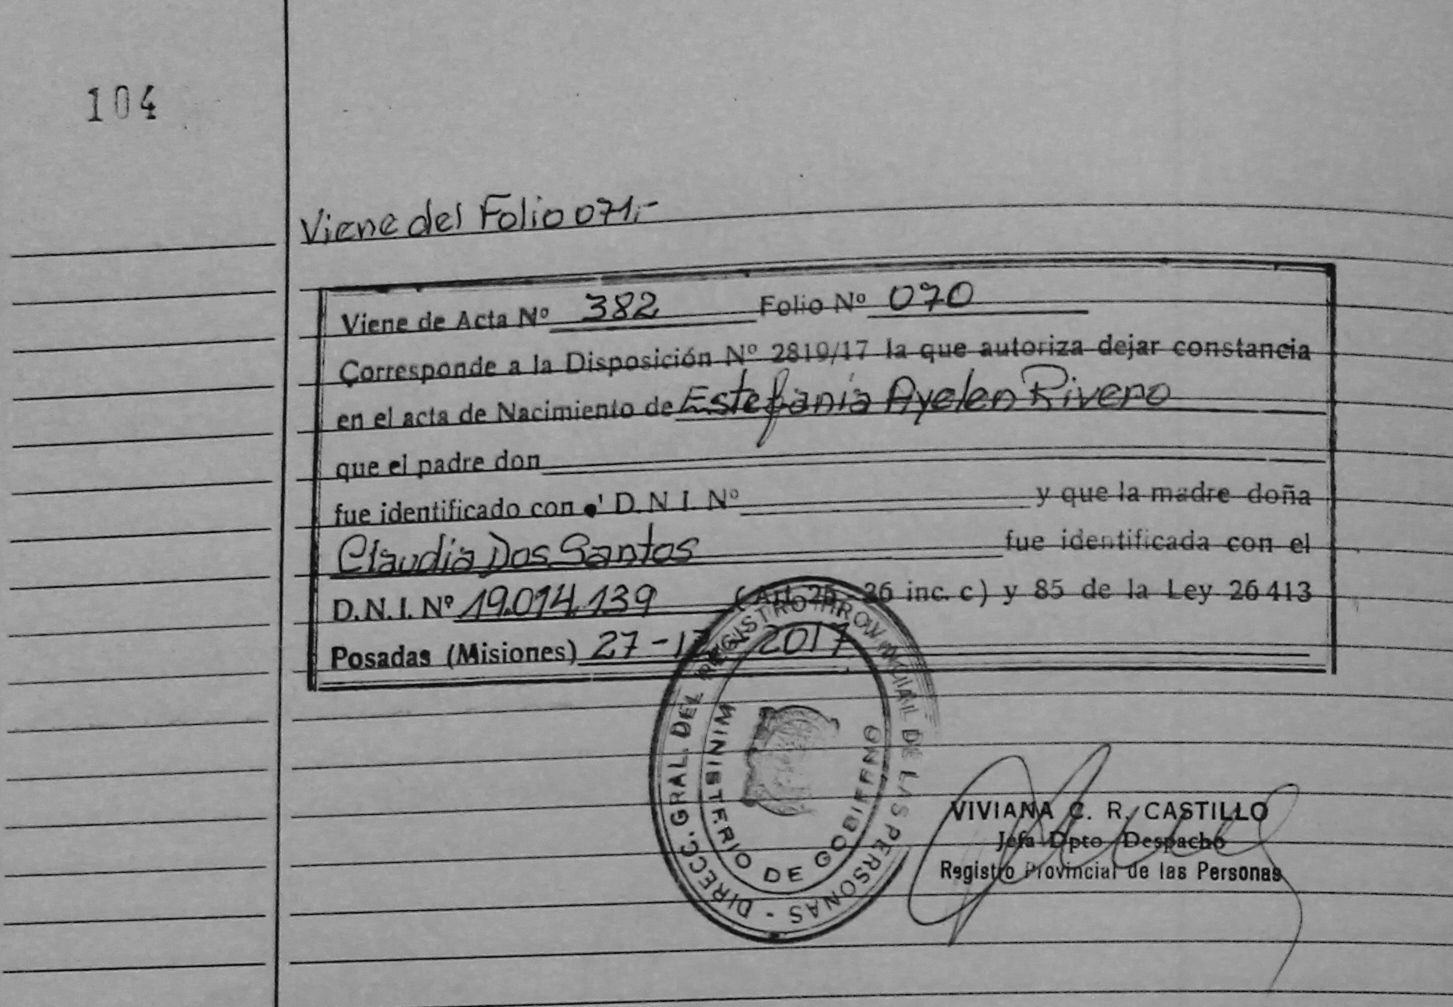 104
Viene del Folio 071.-
Viene de Acta Nº 382 Folio Nº 070
Corresponde a la Disposición Nº 2819/17 la que autoriza dejar constancia
en el acta de Nacimiento de Estefania Ayelen Rivero
que el padre don
fue identificado con el D.N.I. Nº y que la madre doña
Claudia Dos Santos fue identificada con el
D.N.I. Nº 19.014.139 (Art. 25 - 36 inc. c) y 85 de la Ley 26413
Posadas (Misiones) 27-12 2017
DIRECC. GRAL. DEL REGISTRO PROVINCIAL DE LAS PERSONAS -
MINISTERIO DE GOBIERNO
VIVIANA C. R. CASTILLO
Jefa Dpto Despacho
Registro Provincial de las Personas